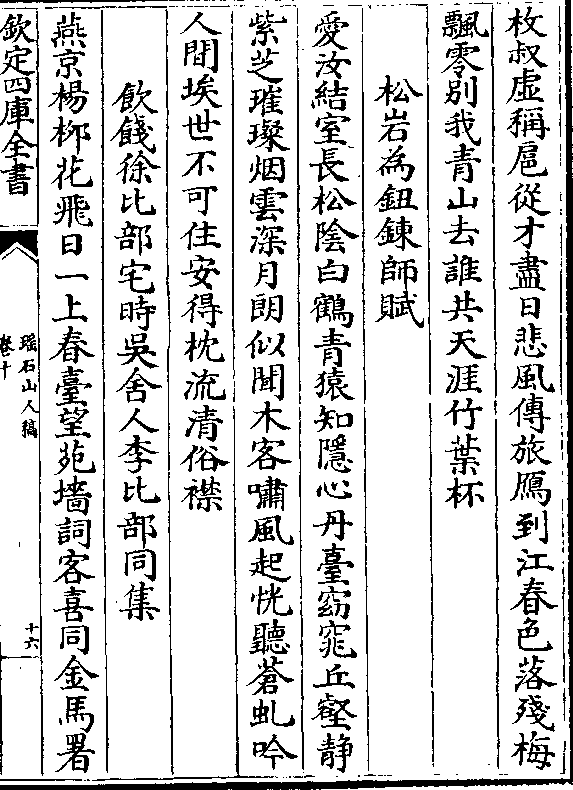 枚叔虚稱扈從才盡日悲風傳旅鴈到江春色落殘梅
飄零別我青山去誰共天涯竹葉杯
松岩為鈕鍊師賦
愛汝結室長松陰白鶴青猿知隱心丹臺窈窕丘壑静
紫芝璀璨烟雲深月朗似聞木客嘯風起恍聽蒼虬吟
人間埃世不可住安得枕流清俗襟
飲餞徐比部宅時吳舍人李比部同集
燕京楊栁花飛日一上春臺望苑墻詞客喜同金馬署
欽定四庫全書
瑶石山人稿
卷十
十六